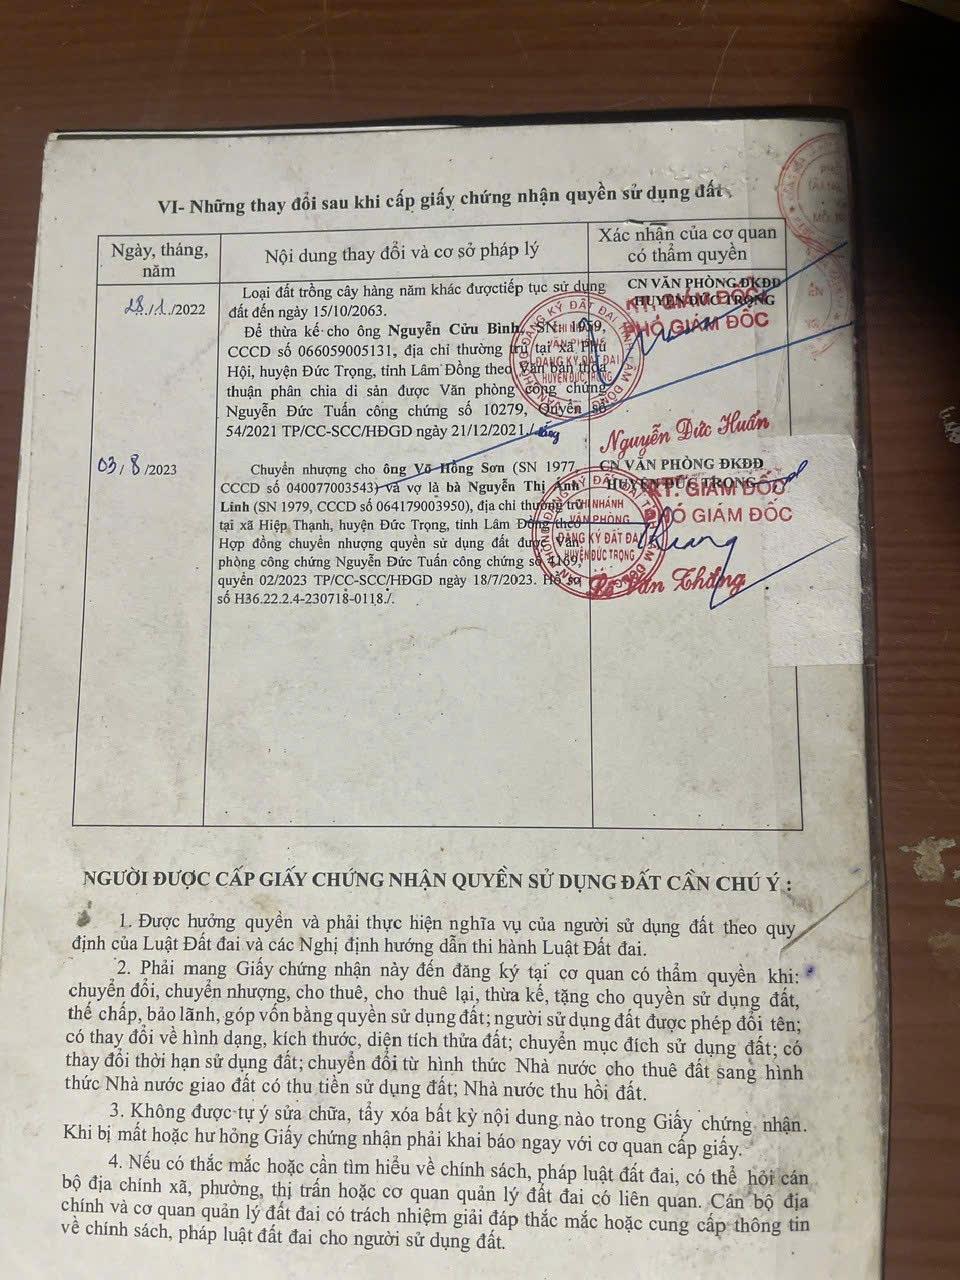 VI- Những thay đổi sau khi cấp giấy chứng nhận quyền sử dụng đất
Ngày, tháng, năm
Nội dung thay đổi và cơ sở pháp lý
Xác nhận của cơ quan có thẩm quyền
28./.1./2022
Loại đất trồng cây hàng năm khác đượctiếp tục sử dụng
đất đến ngày 15/10/2063.
Để thừa kế cho ông Nguyễn Cửu Bình, SN: 1959,
CCCD số 066059005131, địa chỉ thường trú tại xã Phú
Hội, huyện Đức Trọng, tỉnh Lâm Đồng theo Văn bản thỏa
thuận phân chia di sản được Văn phòng công chứng
Nguyễn Đức Tuấn công chứng số 10279, Quyển số
54/2021 TP/CC-SCC/HĐGD ngày 21/12/2021./.
CN VĂN PHÒNG ĐKĐĐ
HUYỆN ĐỨC TRỌNG
KT. GIÁM ĐỐC
PHÓ GIÁM ĐỐC
VĂN PHÒNG
ĐĂNG KÝ ĐẤT ĐAI
HUYỆN ĐỨC TRỌNG
Nguyễn Đức Huấn
03/8/2023
Chuyển nhượng cho ông Võ Hồng Sơn (SN 1977,
CCCD số 040077003543) và vợ là bà Nguyễn Thị Ánh
Linh (SN 1979, CCCD số 064179003950), địa chỉ thường trú
tại xã Hiệp Thạnh, huyện Đức Trọng, tỉnh Lâm Đồng theo
Hợp đồng chuyển nhượng quyền sử dụng đất được Văn
phòng công chứng Nguyễn Đức Tuấn công chứng số 4169,
quyển 02/2023 TP/CC-SCC/HĐGD ngày 18/7/2023. Hồ sơ
số H36.22.2.4-230718-0118./.
CN VĂN PHÒNG ĐKĐĐ
HUYỆN ĐỨC TRỌNG
KT. GIÁM ĐỐC
PHÓ GIÁM ĐỐC
CHI NHÁNH
VĂN PHÒNG
ĐĂNG KÝ ĐẤT ĐAI
HUYỆN ĐỨC TRỌNG
Văn Thắng
NGƯỜI ĐƯỢC CẤP GIẤY CHỨNG NHẬN QUYỀN SỬ DỤNG ĐẤT CẦN CHÚ Ý :
1. Được hưởng quyền và phải thực hiện nghĩa vụ của người sử dụng đất theo quy
định của Luật Đất đai và các Nghị định hướng dẫn thi hành Luật Đất đai.
2. Phải mang Giấy chứng nhận này đến đăng ký tại cơ quan có thẩm quyền khi:
chuyển đổi, chuyển nhượng, cho thuê, cho thuê lại, thừa kế, tặng cho quyền sử dụng đất,
thế chấp, bảo lãnh, góp vốn bằng quyền sử dụng đất; người sử dụng đất được phép đổi tên;
có thay đổi về hình dạng, kích thước, diện tích thửa đất; chuyển mục đích sử dụng đất; có
thay đổi thời hạn sử dụng đất; chuyển đổi từ hình thức Nhà nước cho thuê đất sang hình
thức Nhà nước giao đất có thu tiền sử dụng đất; Nhà nước thu hồi đất.
3. Không được tự ý sửa chữa, tẩy xóa bất kỳ nội dung nào trong Giấy chứng nhận.
Khi bị mất hoặc hư hỏng Giấy chứng nhận phải khai báo ngay với cơ quan cấp giấy.
4. Nếu có thắc mắc hoặc cần tìm hiểu về chính sách, pháp luật đất đai, có thể hỏi cán
bộ địa chính xã, phường, thị trấn hoặc cơ quan quản lý đất đai có liên quan. Cán bộ địa
chính và cơ quan quản lý đất đai có trách nhiệm giải đáp thắc mắc hoặc cung cấp thông tin
về chính sách, pháp luật đất đai cho người sử dụng đất.